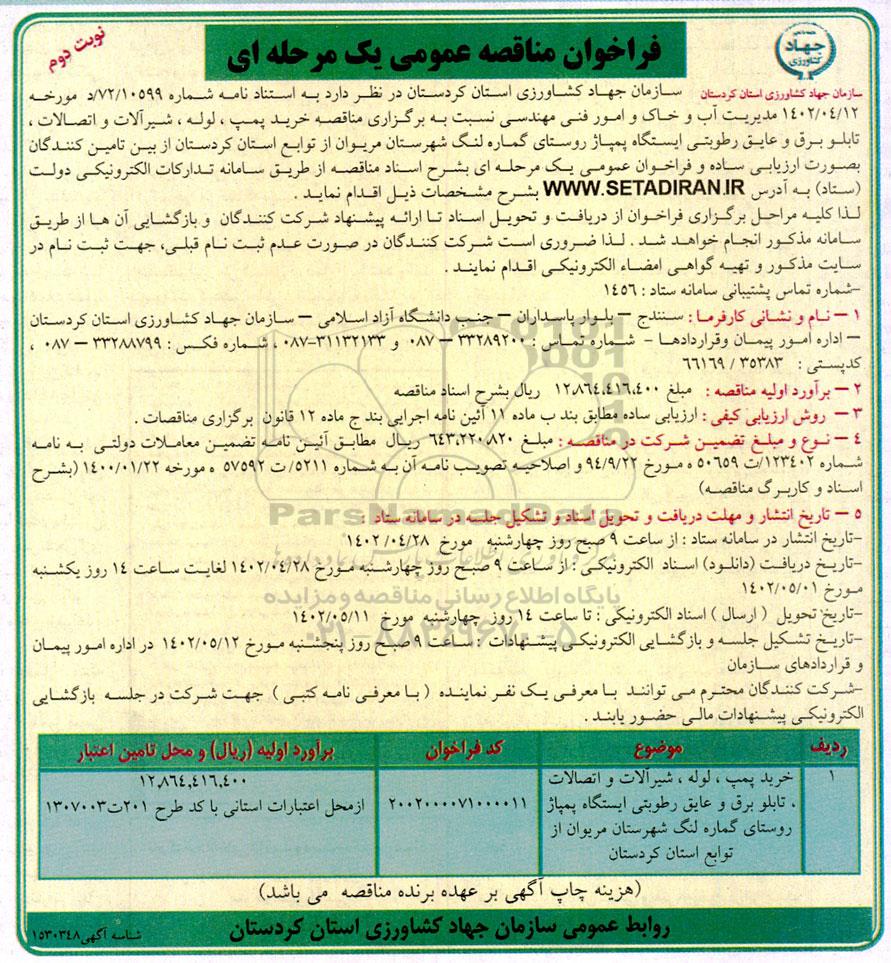 نوبت دوم
فراخوان مناقصه عمومی یک مرحله ای
جهاد
کشاورزی
سازمان جهاد کشاورزی استان کردستان
سازمان جهاد کشاورزی استان کردستان در نظر دارد به استناد نامه شماره ۷۲/۱۰۵۹۹/د مورخه
۱۴۰۲/۰۴/۱۲ مدیریت آب و خاک و امور فنی مهندسی نسبت به برگزاری مناقصه خرید پمپ ، لوله ، شیرآلات و اتصالات ،
تابلو برق و عایق رطوبتی ایستگاه پمپاژ روستای گماره لنگ شهرستان مریوان از توابع استان کردستان از بین تامین کنندگان
بصورت ارزیابی ساده و فراخوان عمومی یک مرحله ای بشرح اسناد مناقصه از طریق سامانه تدارکات الکترونیکی دولت
(ستاد) به آدرس WWW.SETADIRAN.IR بشرح مشخصات ذیل اقدام نماید .
لذا کلیه مراحل برگزاری فراخوان از دریافت و تحویل اسناد تا ارائه پیشنهاد شرکت کنندگان و بازگشایی آن ها از طریق
سامانه مذکور انجام خواهد شد . لذا ضروری است شرکت کنندگان در صورت عدم ثبت نام قبلی، جهت ثبت نام در
سایت مذکور و تهیه گواهی امضاء الکترونیکی اقدام نمایند .
-شماره تماس پشتیبانی سامانه ستاد : ۱۴۵۶
۱ – نام و نشانی کارفرما : سنندج – بلوار پاسداران – جنب دانشگاه آزاد اسلامی – سازمان جهاد کشاورزی استان کردستان
– اداره امور پیمان وقراردادها - شماره تماس : ۳۳۲۸۹۲۰۰ – ۰۸۷ و ۳۱۱۳۲۱۳۳-۰۸۷ ، شماره فکس : ۳۳۲۸۸۷۹۹ – ۰۸۷ ،
کدپستی : ۳۵۳۸۳ / ۶۶۱۶۹
۲ – برآورد اولیه مناقصه : مبلغ ۱۲،۸۶۴،۴۱۶،۴۰۰ ریال بشرح اسناد مناقصه
۳ – روش ارزیابی کیفی : ارزیابی ساده مطابق بند ب ماده ۱۱ آئین نامه اجرایی بند ج ماده ۱۲ قانون برگزاری مناقصات .
۴ – نوع و مبلغ تضمین شرکت در مناقصه : مبلغ ۶۴۳،۲۲۰،۸۲۰ ریال مطابق آئین نامه تضمین معاملات دولتی به نامه
شماره ۱۲۳۴۰۲/ت ۵۰۶۵۹ ه مورخ ۹۴/۹/۲۲ و اصلاحیه تصویب نامه آن به شماره ۵۲۱۱/ ت ۵۷۵۹۲ ه مورخه ۱۴۰۰/۰۱/۲۲ (بشرح
اسناد و کاربرگ مناقصه)
۵ – تاریخ انتشار و مهلت دریافت و تحویل اسناد و تشکیل جلسه در سامانه ستاد :
-تاریخ انتشار در سامانه ستاد : از ساعت ۹ صبح روز چهارشنبه مورخ ۱۴۰۲/۰۴/۲۸
-تاریخ دریافت (دانلود) اسناد الکترونیکی : از ساعت ۹ صبح روز چهارشنبه مورخ ۱۴۰۲/۰۴/۲۸ لغایت ساعت ۱۴ روز یکشنبه
مورخ ۱۴۰۲/۰۵/۰۱
-تاریخ تحویل ( ارسال ) اسناد الکترونیکی : تا ساعت ۱۴ روز چهارشنبه مورخ ۱۴۰۲/۰۵/۱۱
-تاریخ تشکیل جلسه و بازگشایی الکترونیکی پیشنهادات : ساعت ۹ صبح روز پنجشنبه مورخ ۱۴۰۲/۰۵/۱۲ در اداره امور پیمان
و قراردادهای سازمان
-شرکت کنندگان محترم می توانند با معرفی یک نفر نماینده ( با معرفی نامه کتبی ) جهت شرکت در جلسه بازگشایی
الکترونیکی پیشنهادات مالی حضور یابند .
ParsNamadData
پایگاه اطلاع رسانی مناقصه و مزایده
ردیف موضوع کد فراخوان برآورد اولیه (ریال) و محل تامین اعتبار
۱ خرید پمپ ، لوله ، شیرآلات و اتصالات ۱۲،۸۶۴،۴۱۶،۴۰۰
، تابلو برق و عایق رطوبتی ایستگاه پمپاژ ۲۰۰۲۰۰۰۰۷۱۰۰۰۰۱۱ ازمحل اعتبارات استانی با کد طرح ۲۰۱ت۱۳۰۷۰۰۳
روستای گماره لنگ شهرستان مریوان از
توابع استان کردستان
(هزینه چاپ آگهی بر عهده برنده مناقصه می باشد)
روابط عمومی سازمان جهاد کشاورزی استان کردستان
شناسه آگهی۱۵۳۰۳۴۸